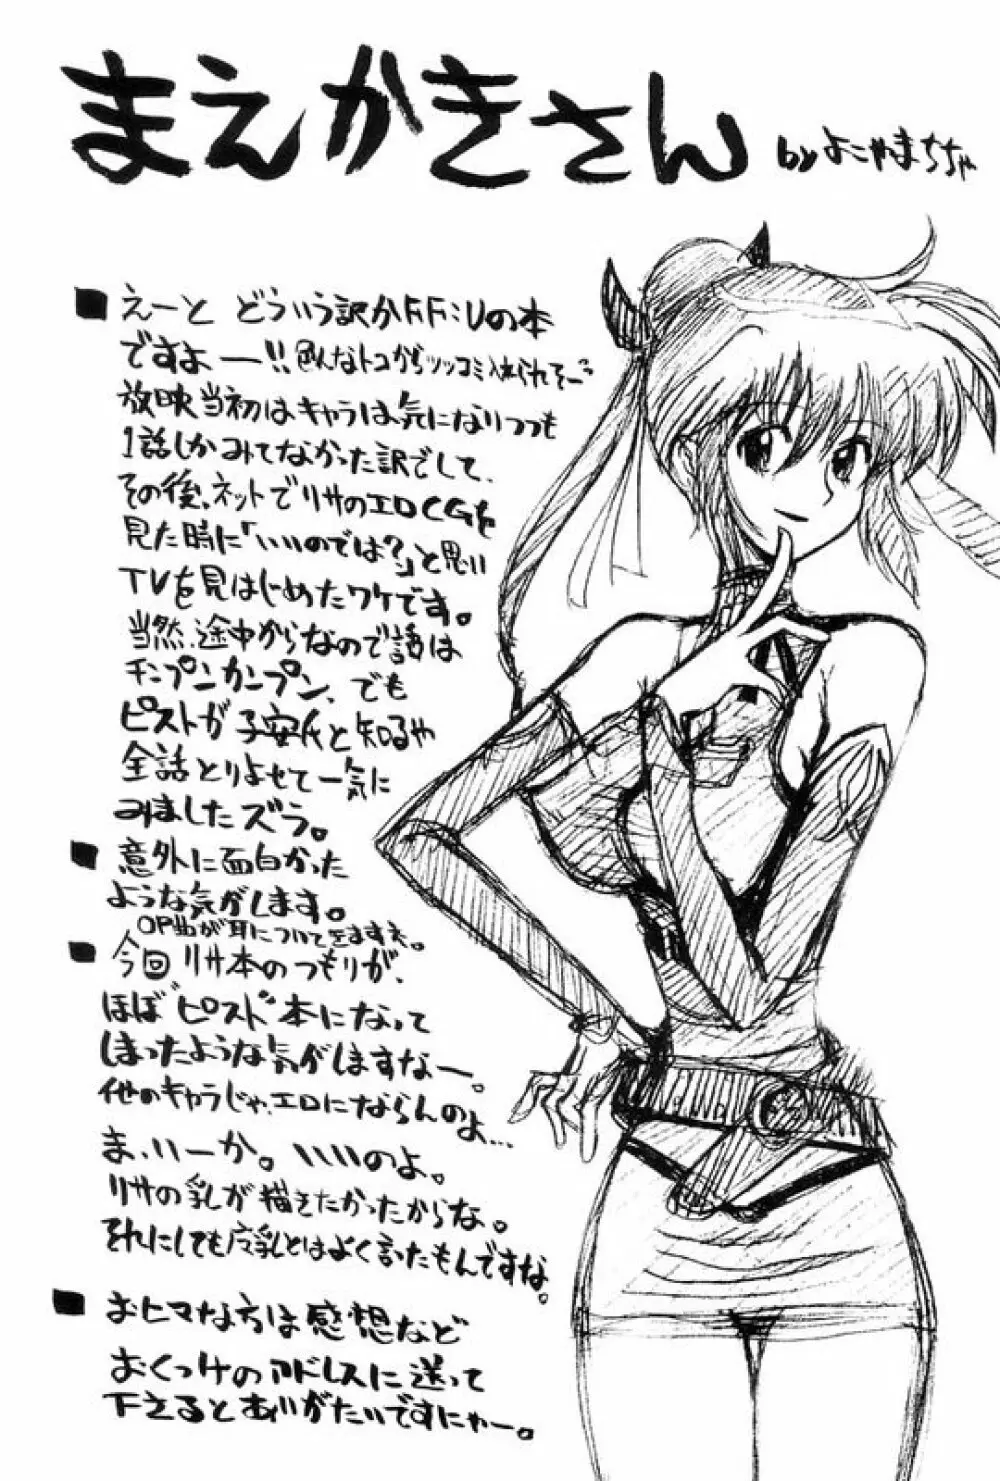 まえかきさん
by よこやまちちゃ
■ えーと どういう訳かFF:Uの本
ですよー!! 色んなトコからツッコミ入れられそー
放映当初はキャラは気になりつつも
1話しかみてなかった訳でして、
その後、ネットでリサのエロCGを
見た時に「いいのでは?」と思い
TVを見はじめたワケです。
当然、途中からなので話は
チンプンカンプン、でも
ピストが子安氏と知るや
全話とりよせて一気に
みましたズラ。
■ 意外に面白かった
ような気がします。
OP曲が耳についてきますネ。
■ 今回 リサ本のつもりが、
ほぼ"ピスト"本になって
しまったような気がしますなー。
他のキャラじゃ、エロにならんのよ…
ま、いーか。いいのよ。
リサの乳が描きたかったからな。
それにしても 乳とはよく言ったもんですな。
■ おヒマな方は感想など
おくづけのアドレスに送って
下さるとありがたいですにゃー。